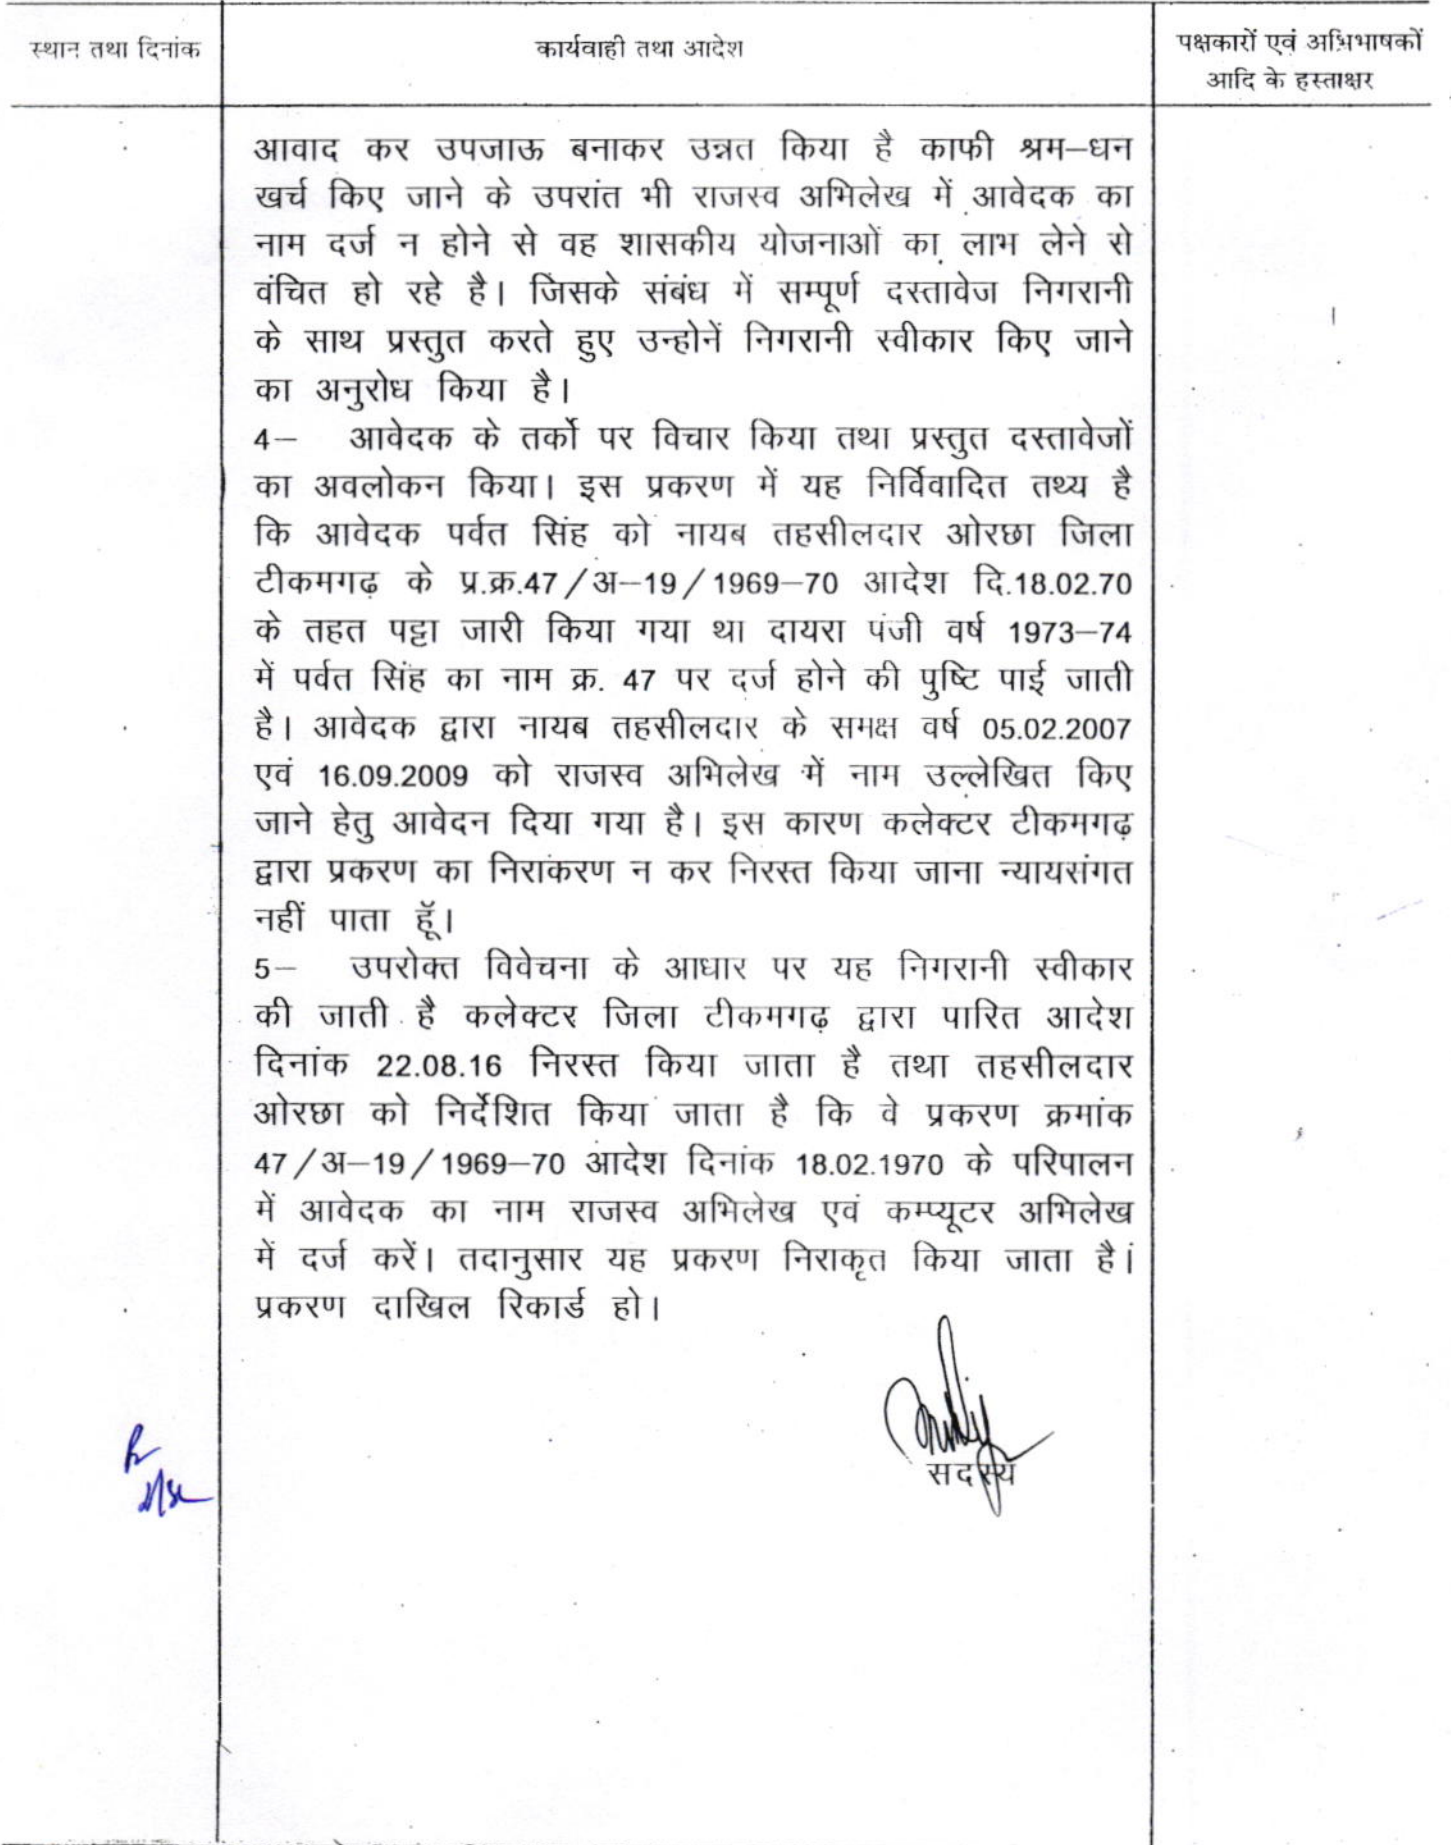 स्थान तथा दिनांक
कार्यवाही तथा आदेश
पक्षकारों एवं अभिभाषकों
आदि के हस्ताक्षर
आवाद कर उपजाऊ बनाकर उन्नत किया है काफी श्रम–धन
खर्च किए जाने के उपरांत भी राजस्व अभिलेख में आवेदक का
नाम दर्ज न होने से वह शासकीय योजनाओं का लाभ लेने से
वंचित हो रहे है। जिसके संबंध में सम्पूर्ण दस्तावेज निगरानी
के साथ प्रस्तुत करते हुए उन्होनें निगरानी स्वीकार किए जाने
का अनुरोध किया है।
4– आवेदक के तर्को पर विचार किया तथा प्रस्तुत दस्तावेजों
का अवलोकन किया। इस प्रकरण में यह निर्विवादित तथ्य है
कि आवेदक पर्वत सिंह को नायब तहसीलदार ओरछा जिला
टीकमगढ़ के प्र.क्र.47/अ–19/1969–70 आदेश दि.18.02.70
के तहत पट्टा जारी किया गया था दायरा पंजी वर्ष 1973–74
में पर्वत सिंह का नाम क्र. 47 पर दर्ज होने की पुष्टि पाई जाती
है। आवेदक द्वारा नायब तहसीलदार के समक्ष वर्ष 05.02.2007
एवं 16.09.2009 को राजस्व अभिलेख में नाम उल्लेखित किए
जाने हेतु आवेदन दिया गया है। इस कारण कलेक्टर टीकमगढ़
द्वारा प्रकरण का निराकरण न कर निरस्त किया जाना न्यायसंगत
नहीं पाता हूॅ।
5– उपरोक्त विवेचना के आधार पर यह निगरानी स्वीकार
की जाती है कलेक्टर जिला टीकमगढ़ द्वारा पारित आदेश
दिनांक 22.08.16 निरस्त किया जाता है तथा तहसीलदार
ओरछा को निर्देशित किया जाता है कि वे प्रकरण क्रमांक
47/अ–19/1969–70 आदेश दिनांक 18.02.1970 के परिपालन
में आवेदक का नाम राजस्व अभिलेख एवं कम्प्यूटर अभिलेख
में दर्ज करें। तदानुसार यह प्रकरण निराकृत किया जाता है।
प्रकरण दाखिल रिकार्ड हो।
सदस्य